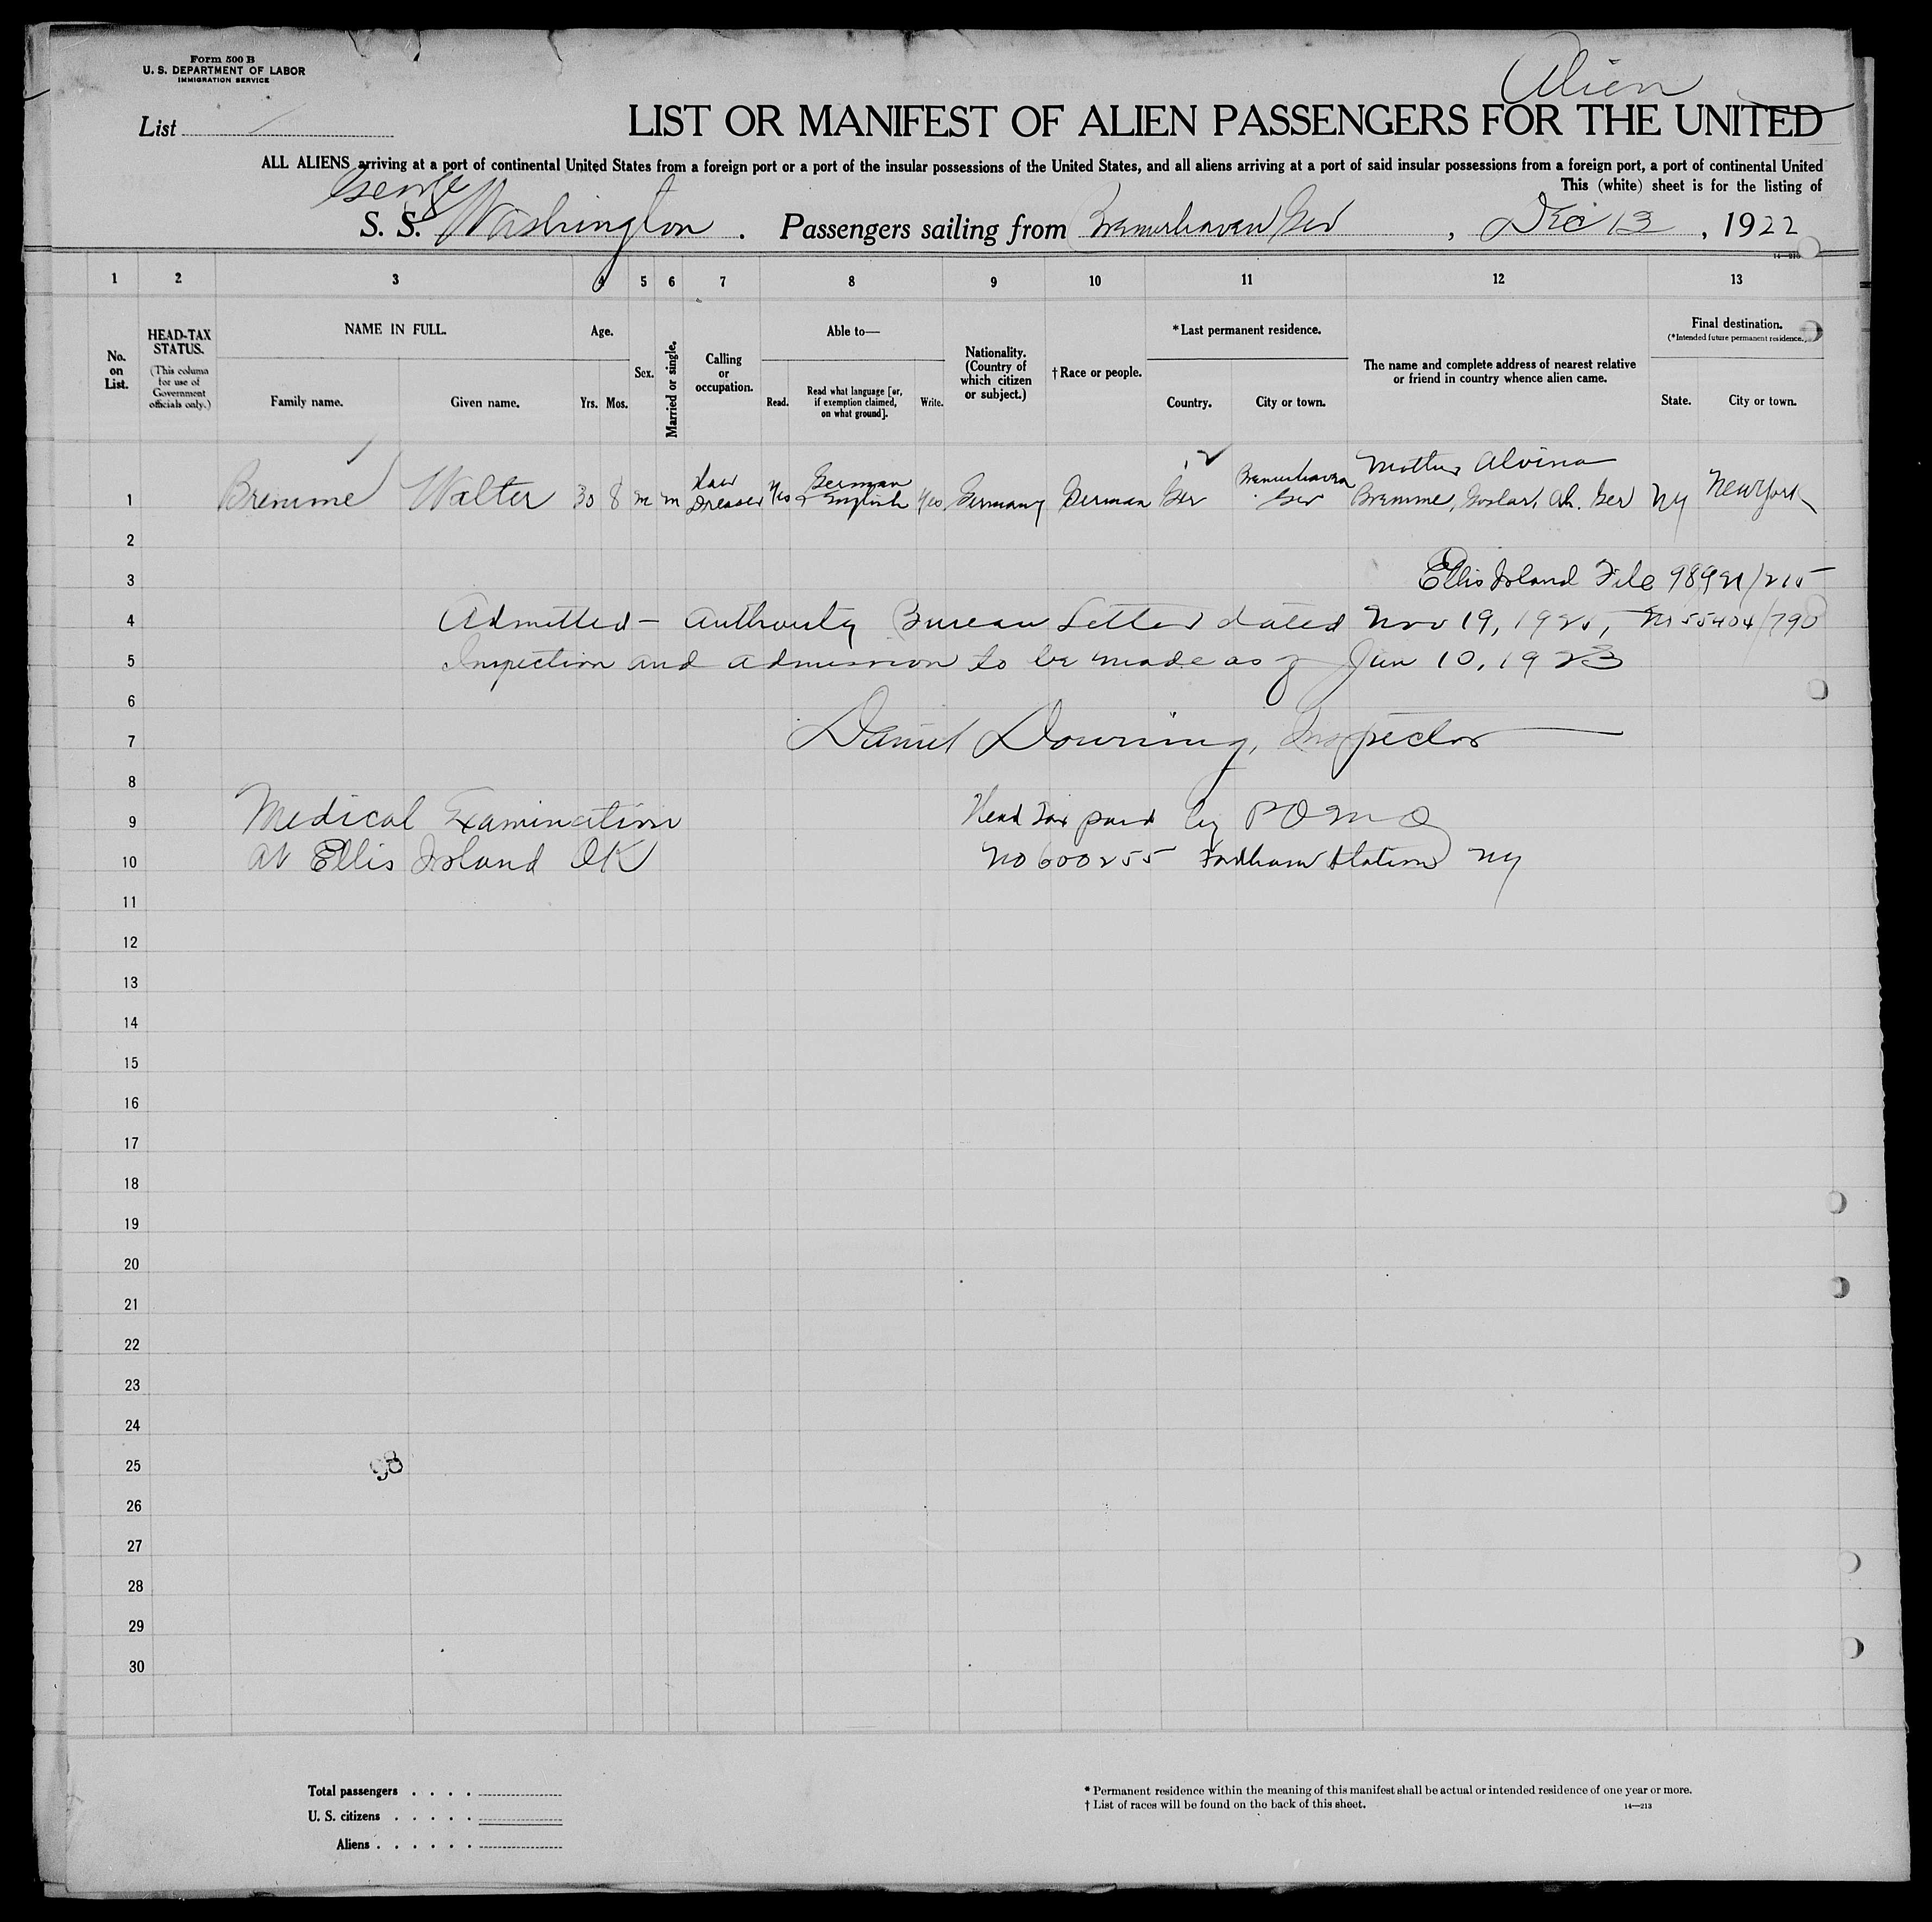 Form 500 B
U. S. DEPARTMENT OF LABOR
IMMIGRATION SERVICE
Alien
List
LIST OR MANIFEST OF ALIEN PASSENGERS FOR THE UNITED
ALL ALIENS arriving at a port of continental United States from a foreign port or a port of the insular possessions of the United States, and all aliens arriving at a port of said insular possessions from a foreign port, a port of continental United
This (white) sheet is for the listing of
George
S. S. Washington . Passengers sailing from Bremerhaven Ger , Dec 13 , 1922
1 2 3 4 5 6 7 8 9 10 11 12 13
No. on List.
HEAD-TAX STATUS.
(This column for use of Government officials only.)
NAME IN FULL.
Family name. Given name.
Age.
Yrs. Mos.
Sex.
Married or single.
Calling or occupation.
Able to—
Read. Read what language [or, if exemption claimed, on what ground]. Write.
Nationality. (Country of which citizen or subject.)
†Race or people.
*Last permanent residence.
Country. City or town.
The name and complete address of nearest relative or friend in country whence alien came.
Final destination.
(*Intended future permanent residence.)
State. City or town.
1 Bremme Walter 30 8 m m Dresser Yes German & English Yes Germany German Ger Bremerhaven Ger Mother Alvina Bremme, Goslar, Ger NY New York
2
3 Ellis Island File 98921/215
4 Admitted – Authority Bureau Letter dated Nov 19, 1925, No 55404/790
5 Inspection and admission to be made as of Jan 10, 1923
6
7 Daniel Downing, Inspector
8
9 Medical Examination Head Tax paid by P O M O
10 At Ellis Island OK No 600255 Fordham Station NY
11
12
13
14
15
16
17
18
19
20
21
22
23
24
25 98
26
27
28
29
30
Total passengers . . . .
U. S. citizens . . . . .
Aliens . . . . . .
* Permanent residence within the meaning of this manifest shall be actual or intended residence of one year or more.
† List of races will be found on the back of this sheet.
14—213